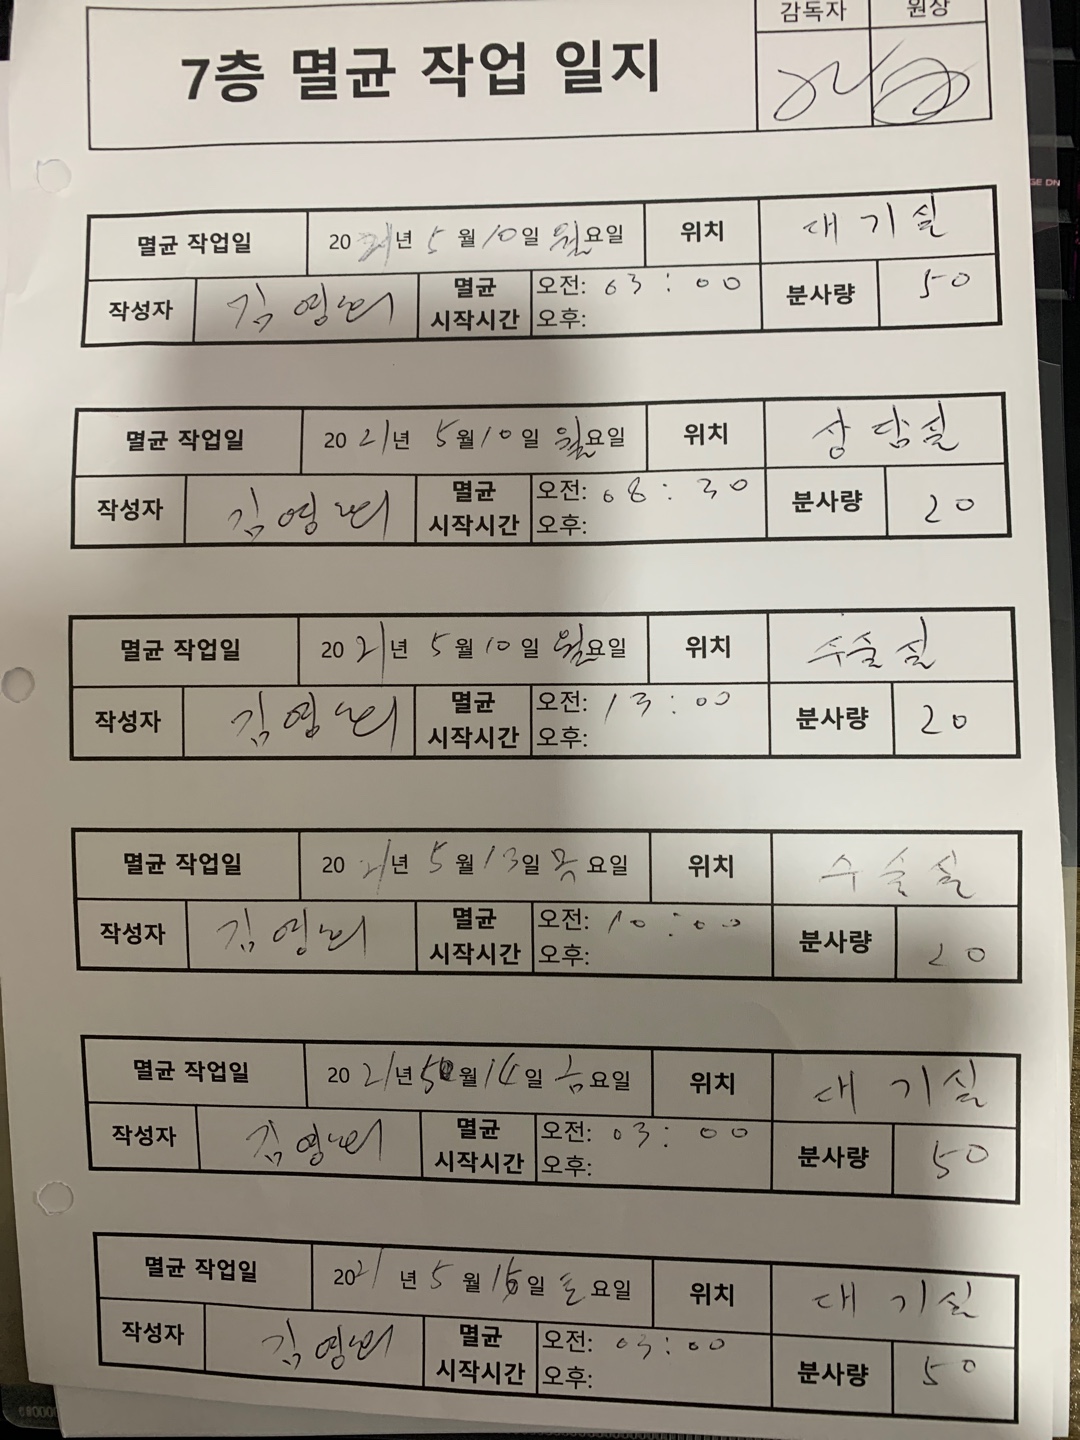 감독자 원장
7층 멸균 작업 일지
멸균 작업일 2021년 5월 10일 월요일 위치 대기실
작성자 멸균 시작시간 오전: 03:00 오후: 분사량 50
멸균 작업일 2021년 5월 10일 월요일 위치 상담실
작성자 멸균 시작시간 오전: 08:30 오후: 분사량 20
멸균 작업일 2021년 5월 10일 월요일 위치 수술실
작성자 멸균 시작시간 오전: 13:00 오후: 분사량 20
멸균 작업일 2021년 5월 13일 목요일 위치 수술실
작성자 멸균 시작시간 오전: 10:00 오후: 분사량 20
멸균 작업일 2021년 5월 14일 금요일 위치 대기실
작성자 멸균 시작시간 오전: 03:00 오후: 분사량 50
멸균 작업일 2021년 5월 15일 토요일 위치 대기실
작성자 멸균 시작시간 오전: 03:00 오후: 분사량 50
GE DN